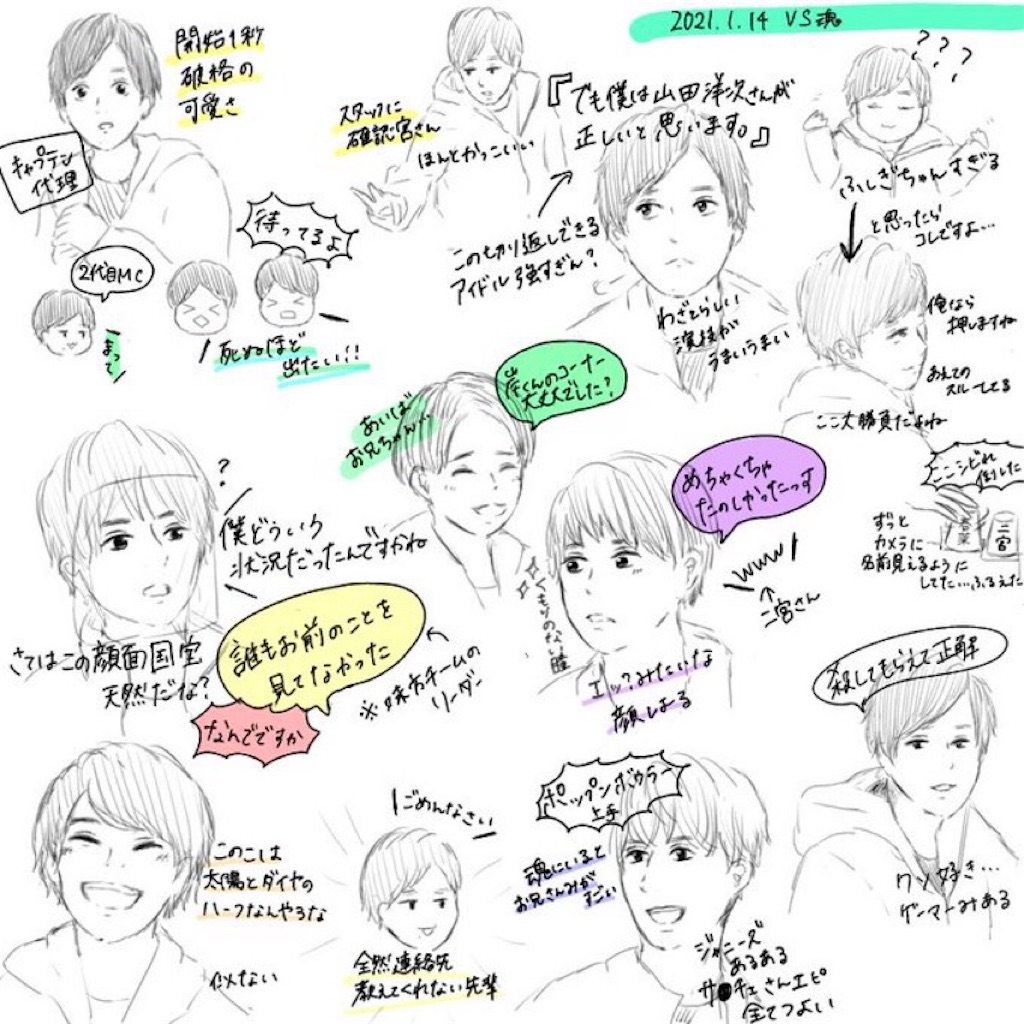 2021.1.14 VS魂
開始1秒
破格の
可愛さ
キャプテン
代理
スタッフに
確認宮さん
ほんとかっこいい
『でも僕は山田洋次さんが
正しいと思います。』
???
ふしぎちゃんすぎる
と思ったら
コレですよ…
待ってるよ
2代目MC
まって
死ぬほど
出たい!!
この切り返しできる
アイドル強すぎん?
わざとらしい
演技が
うまいうまい
俺なら
押しますね
あえての
スルーしてる
ここ大勝負だよね
あいば
お兄ちゃん…
岸くんのコーナー
大丈夫でした?
めちゃくちゃ
たのしかったっす
www
二宮さん
くもりのない瞳
エッ?みたいな
顔しよる
ここシビれ
倒した
二宮
ずっと
カメラに
名前見えるように
してた…ふるえた
?
僕どういう
状況だったんですかね
さてはこの顔面国宝
天然だな?
誰もお前のことを
見てなかった
※味方チームの
リーダー
なんでですか
殺してもらえて正解
クソ好き…
ゲーマーみある
このこは
太陽とダイヤの
ハーフなんやろな
似てない
ごめんなさい
全然連絡先
教えてくれない先輩
ポップンボウラー
上手
魂にいると
お兄さんみが
すごい
ジャニーズ
あるある
サ●チェさんエピ
全てつよい